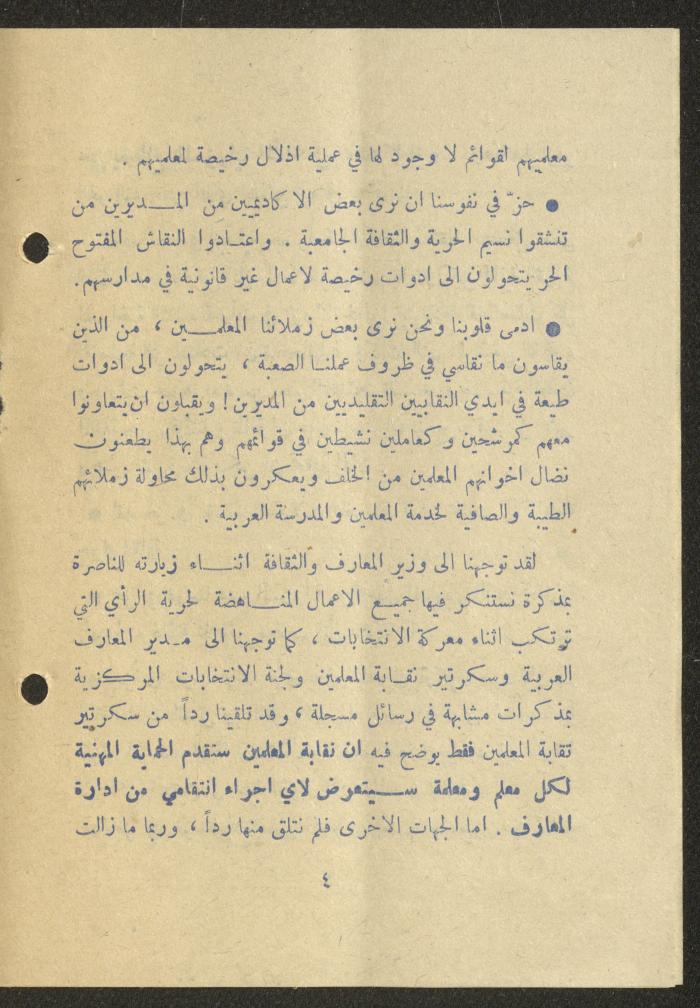 معلميهم لقوائم لا وجود لها في عملية اذلال رخيصة لمعلميهم .
● حزّ في نفوسنا ان نرى بعض الاكاديميين من المـــديرين من
تنشقوا نسيم الحرية والثقافة الجامعية . واعتـادوا النقاش المفتوح
الحر يتحولون الى ادوات رخيصة لاعمال غير قانونية في مدارسهم.
● ادمى قلوبنا ونحن نرى بعض زملائنا المعلمـــين ، من الذين
يقاسون ما نقاسي في ظروف عملنـا الصعبة ، يتحولون الى ادوات
طيعة في ايدي النقابيين التقليديين من المديرين ! ويقبلون ان يتعاونوا
معهم كمرشحين وكعاملين نشيطين في قوائمهم وهم بهذا يطعنون
نضال اخوانهم المعلمين من الخلف ويعكرون بذلك محاولة زملائهم
الطيبة والصافية لخدمة المعلمين والمدرسة العربية .
لقد توجهنا الى وزير المعارف والثقافة اثنـــاء زيارته للناصرة
بمذكرة نستنكر فيها جميـع الاعمال المنـاهضة لحرية الرأي التي
ترتكب اثناء معركة الانتخابات ، كما توجهنا الى مـدير المعارف
العربية وسكرتير نقـابة المعلمين ولجنة الانتخابات المركزية
بمذكرات مشابهة في رسائل مسجلة ، وقد تلقينا رداً من سكرتير
نقابة المعلمين فقط يوضح فيه ان نقابة المعلمين ستقدم الحماية المهنية
لكل معلم ومعلمة ســـيتعرض لاي اجراء انتقامي من ادارة
المعارف . اما الجهات الاخرى فلم نتلق منها رداً ، وربما ما زالت
٤